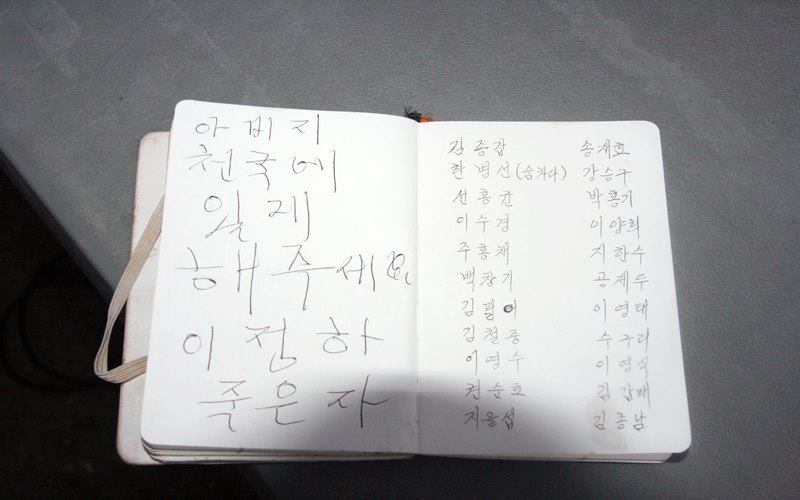 아버지
천국에
일제
해주세요
이전하
죽은자
김종갑
한병선(숨차다)
선홍균
이수경
주홍채
백창기
김필이
김철종
이영수
권순호
지을섭
송재호
강승구
박홍기
이양희
지한수
공제두
이영태
수구리
이영식
김갑배
김종남